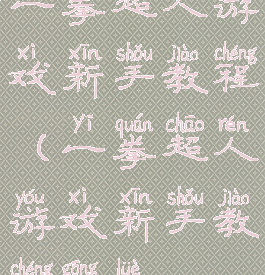 一拳超人游
xì xīn shǒu jiào chéng
戏新手教程
yī quán chāo rén
（一拳超人
yóu xì xīn shǒu jiào
游戏新手教
chéng gōng lüè